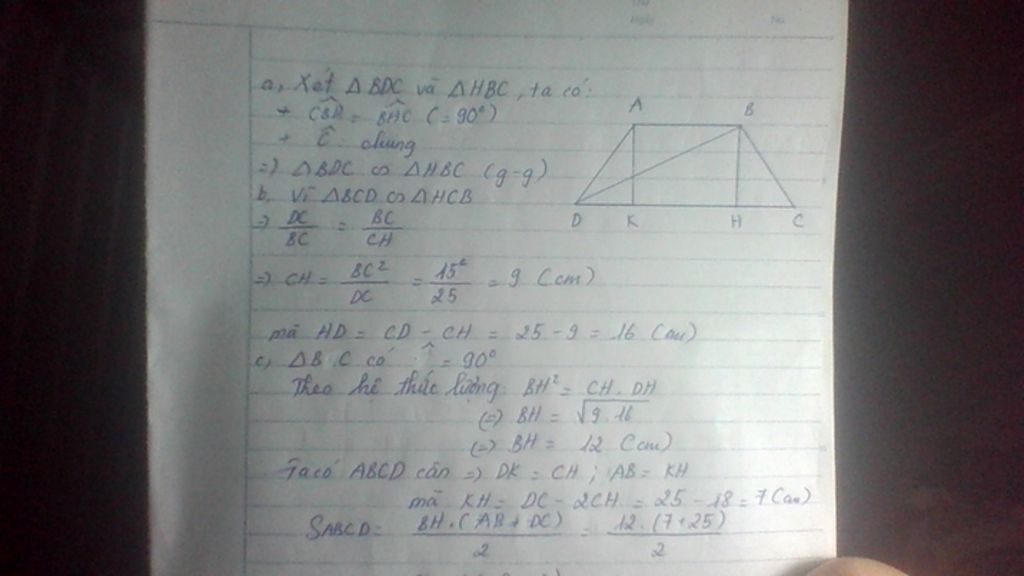 a, Xét ΔBDC và ΔHBC, ta có:
+ CBD = BHC (= 90°)
+ C: chung
=> ΔBDC ∽ ΔHBC (g-g)
b. Vì ΔBCD ∽ ΔHCB
=> DC/BC = BC/CH
=> CH = BC²/DC = 15²/25 = 9 (cm)
mà HD = CD - CH = 25 - 9 = 16 (cm)
c, ΔB C có = 90°
Theo hệ thức lượng: BH² = CH . DH
(=) BH = √9.16
(=) BH = 12 (cm)
Ta có ABCD cân => DK = CH ; AB = KH
mà KH = DC - 2CH = 25 - 18 = 7 (cm)
SABCD = BH.(AB + DC)/2 = 12.(7+25)/2
A B
D K H C